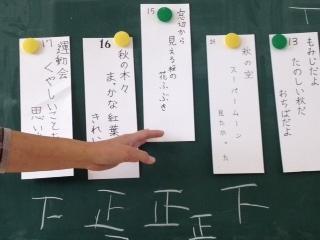 13
もみじだよ
たのしい秋だ
おちばだよ
秋の空
スーパームーン
見たかった
15
窓辺から
見える秋の
花ふぶき
16
秋の木々
まっかな紅葉
きれい
17
運動会
くやしいこと
思い
下
正
正
正
下